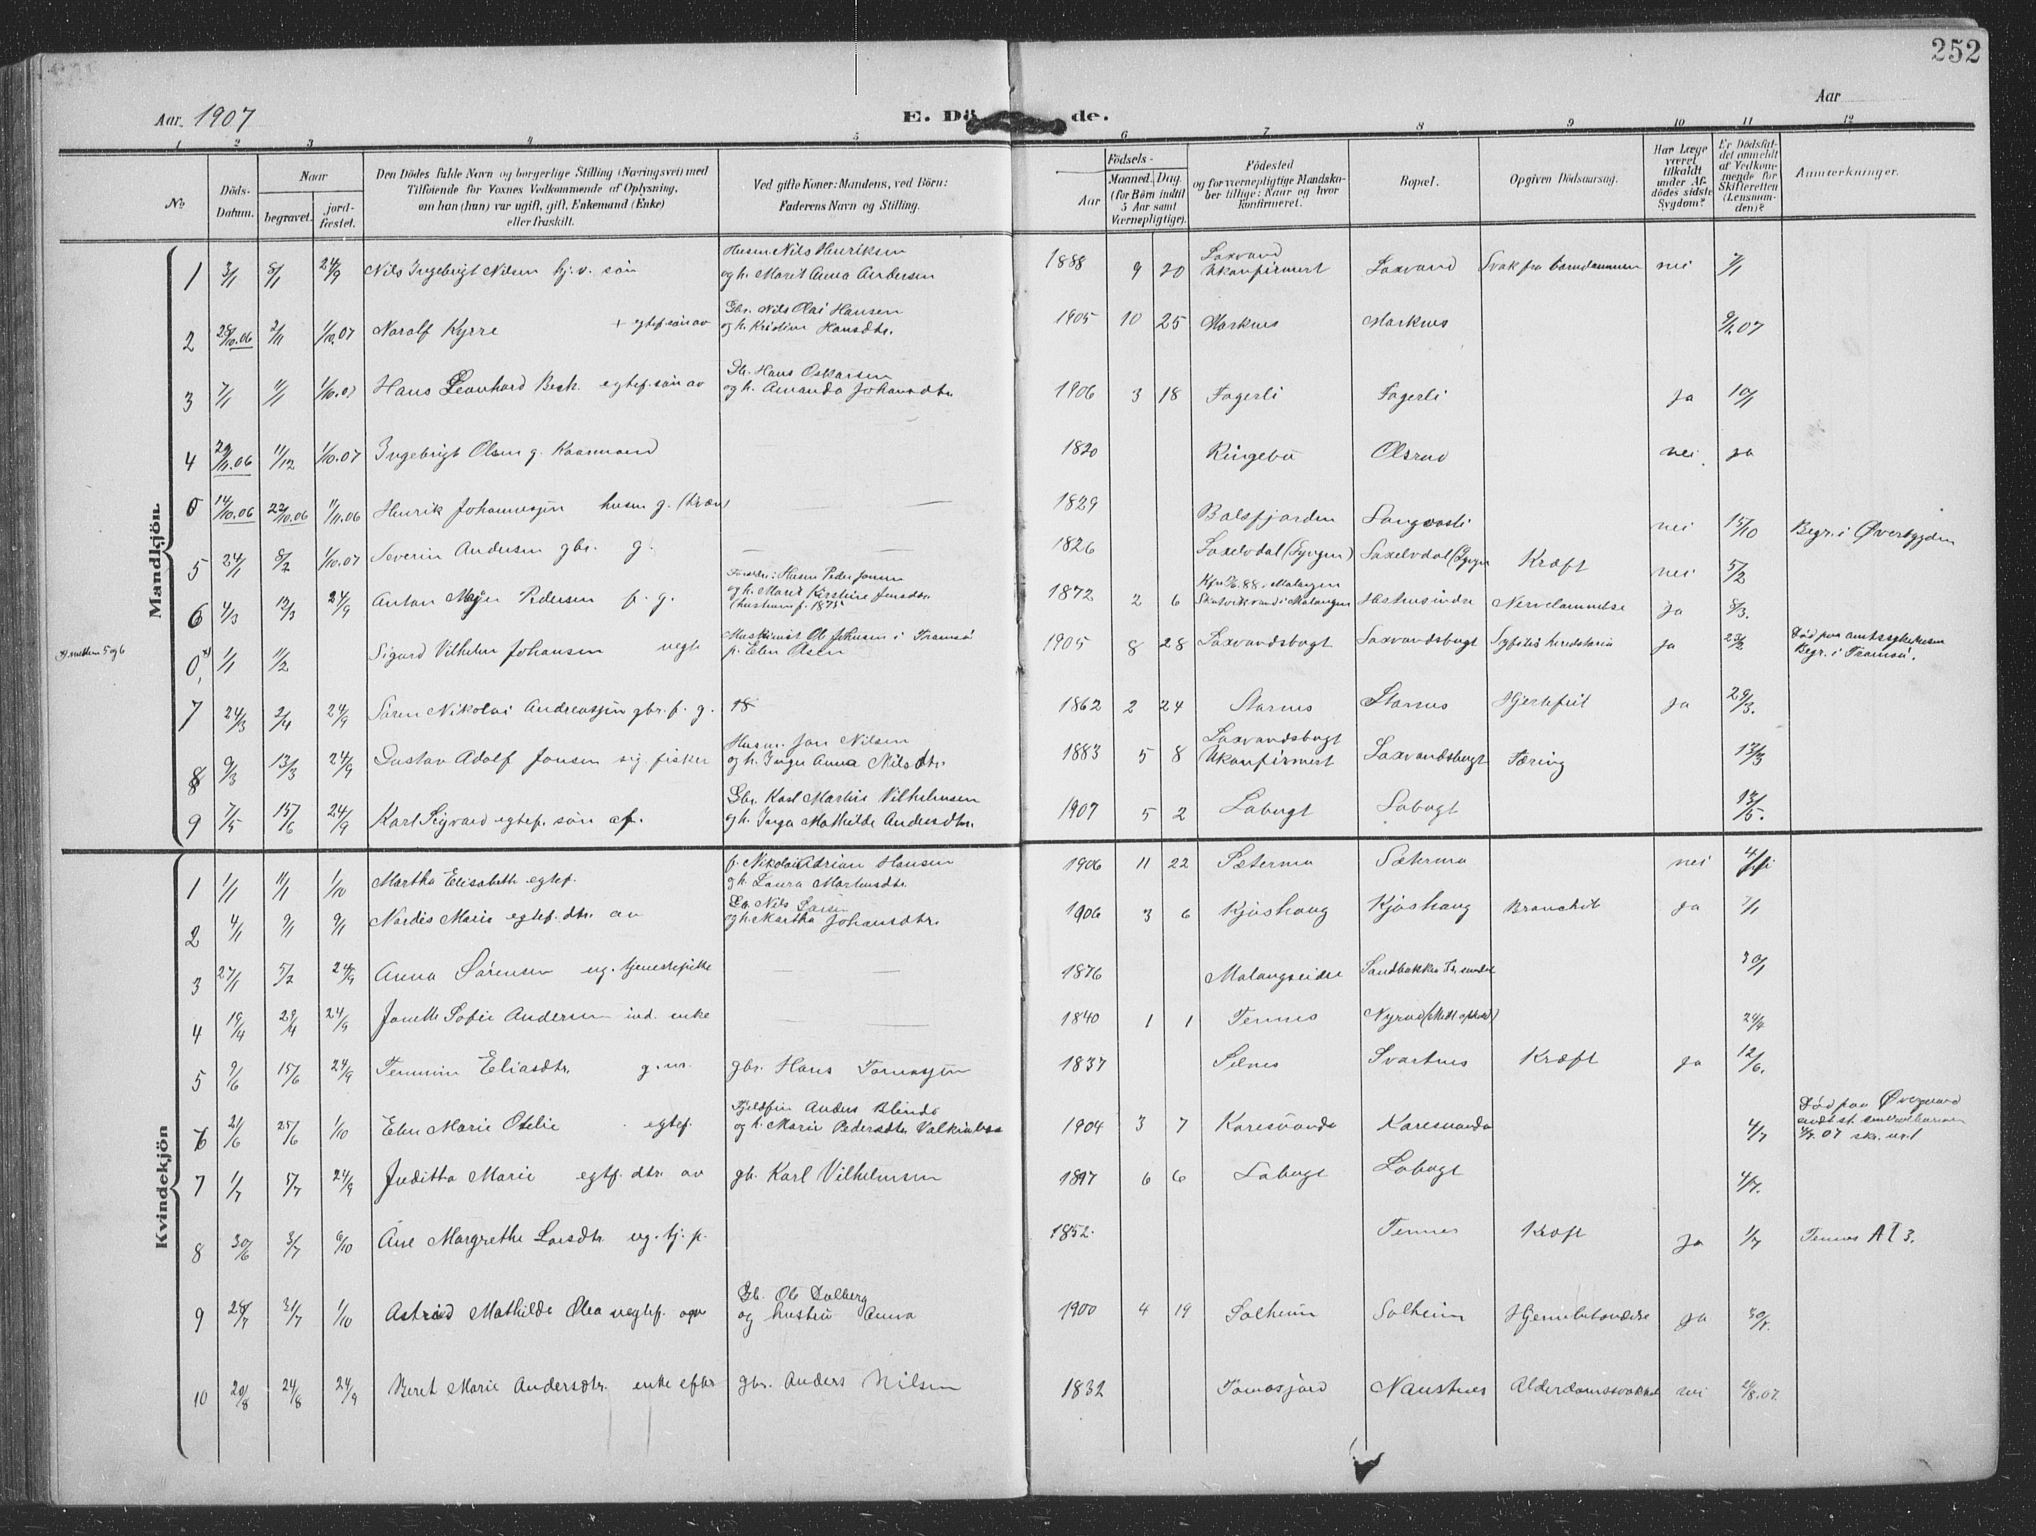 252
Aar 1907
E. Dö de.
Aar
1 2 3 4 5 6 7 8 9 10 11 12
No.
Döds-Datum.
Naar
begravet.
jord-fæstet.
Den Dödes fulde Navn og borgerlige Stilling (Næringsvei) med
Tilföiende for Voxnes Vedkommende af Oplysning,
om han (hun) var ugift, gift, Enkemand (Enke)
eller fraskilt.
Ved gifte Koner: Mandens, ved Börn:
Faderens Navn og Stilling.
Födsels-
Aar
Maaned. Dag.
(for Börn indtil
5 Aar samt
Værnepligtige).
Födested
og for værnepligtige Mandskaber tillige: Naar og hvor
konfirmeret.
Bopæl.
Opgiven Dödsaarsag.
Har Læge
været
tilkaldt
under Afdödes sidste
Sygdom?
Er Dödsfaldet anmeldt
af Vedkommende for
Skifteretten
(Lensmanden)?
Anmærkninger.
Mandkjön.
1 3/1 8/1 24/9 Nils Ingebrigt Nilsen hj. v. sön Husm Nils Henriksen og h. Marit Anna Andersen 1888 9 20 Laxvand Ukonfirmert Laxvand Svak fra barndommen nei 7/1
2 25/10.06 2/11 1/10.07 Noralf Kyrre + egtef. sön av Gbr. Nils Olai Hansen og h. Kristine Hansdtr. 1905 10 25 Marknes Marknes 9/1.07
3 7/1 11/1 1/10.07 Hans Leonhard Beck egtef. sön av Gb. Hans Oskarsen og h. Amanda Johansdtr. 1906 3 18 Fagerli Fagerli ja 10/1
4 29/11.06 11/12 1/10.07 Ingebrigt Olsen g. Kaarmand 1820 Ringebu Olsrud nei ja
0 14/10.06 22/10.06 1/11.06 Henrik Johannesen husm. g. (kvæn) 1829 Balsfjorden Langvasli nei 15/10 Begr. i Øverbygden
5 24/1 8/2 1/10.07 Severin Andersen gbr. g. 1826 Laxelvdal (Lyngen) Laxelvdal (Lyngen) Kræft nei 5/2
6 4/3 12/3 24/9 Anton Meyer Pedersen f. g. Forældr: Husm Peder Jonsen og h. Marit Kirstine Jensdtr. (hustru f. 1875) 1872 2 6 Nervelammelse ja 8/3.
H mellem 5 og 6
0, 1/1 11/2 Sigurd Vilhelm Johansen uegte Maskinist Ole Johnsen i Tromsö p. Elen Olsen 1905 8 28 Laxvandsbugt Laxvandsbugt Syfilis hereditaria ja 23/2 Död paa amtssykehuset Begr. i Tromsö.
7 24/3 2/4 24/9 Sören Nikolai Andreassen gbr. f. g. 18 1862 2 24 Stornes Stornes Hjertefeil ja 29/3.
8 9/3 13/3 24/9 Gustav Adolf Jonsen ug. fisker Husm. Jon Nilsen og h. Inger Anna Nilsdtr. 1883 5 8 Laxvandsbugt Ukonfirmert Laxvandsbugt Tæring 13/3
9 7/5 15/6 24/9 Karl Sigvard egtef. sön af. Gbr. Karl Martin Vilhelmsen og h. Inga Mathilde Andersdtr. 1907 5 2 Labugt Labugt 13/5.
Kvindekjön
1 1/1 11/1 1/10 Martha Elisabeth egtef. f. Nikolai Adrian Hansen og h. Laura Martinsdtr. 1906 11 22 Sæterma Sæterma nei
2 4/1 9/1 9/1 Nordis Marie egtef. dtr. av Gb. Nils Larsen og h. Martha Johansdtr. 1906 3 6 Kjöshaug Kjöshaug Bronchit ja 7/1
3 27/1 5/2 24/9 Anna Sørensen ug. tjenestepike 1876 Malangseidet Sandbakken Tr. sundet 30/1
4 19/4 29/4 24/9 Janette Sofie Andersen ind. enke 1840 1 1 Tennes Nyrud (Midl. ophold) 24/4
5 9/6 15/6 24/9 Temmin Eliasdtr. g.m. gbr. Hans Tomassen 1837 Selnes Svartnes Kræft ja 12/6.
6 21/6 25/6 1/10 Elen Marie Otelie egtef. Fjeldfin Anders Blindo og h. Marie Pedersdtr Valkiabæ 1904 3 7 Karesuando Karesuando 4/7 Död paa Øvergaard 4/7.07 sk. nr. 1
7 1/7 5/7 24/9 Juditta Marie egtef. dtr. av gb. Karl Vilhelmsen 1897 6 6 Labugt Labugt 4/7.
8 30/6 3/7 6/10 Ane Margrethe Larsdtr ug. tj. p. 1852. Tennes Kræft ja 1/7 Tennes A I 3.
9 28/7 31/7 1/10 Astrid Mathilde Olea uegtef. av Gb. Ole Dalberg og hustru Anna 1900 4 19 Solheim Solheim Hjernebetændelse ja 30/8.
10 20/8 24/8 24/9 Beret Marie Andersdtr. enke efter gbr. Anders Nilsen 1832 Tomasjord Naustnes Alderdomssvakhet nei 21/8.07.